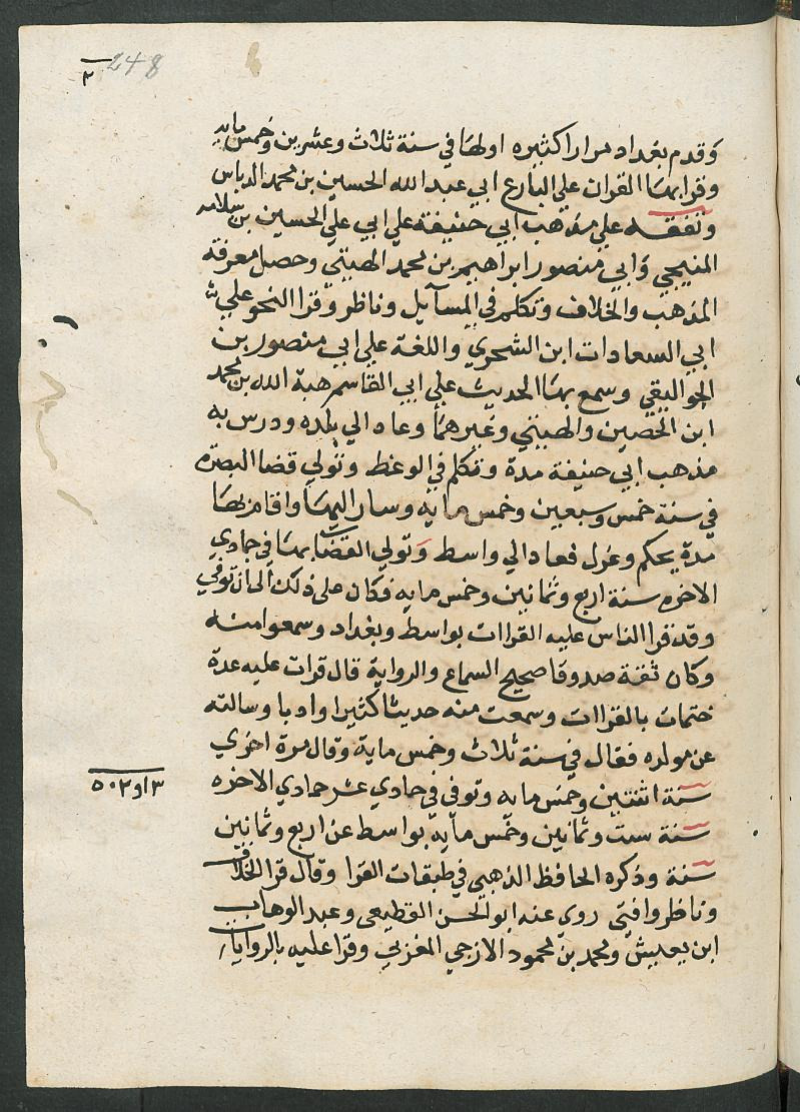 248
٢
وقدم بغداد مرارا كثيره اولها في سنة ثلاث وعشرين وخمس مايه
وقرا بها القران علي البارع ابي عبد الله الحسين بن محمد الدباس
وتفقه علي مذهب ابي حنيفة علي ابي علي الحسين بن سلامه
المنبجي وابي منصور ابراهيم بن محمد الهيتي وحصل معرفة
المذهب والخلاف وتكلم في المسآيل وناظر وقرا النحو علي
ابي السعادات ابن الشجري واللغة علي ابي منصور بن
الجواليقي وسمع بها الحديث علي ابي القاسم هبة الله بن محمد
ابن الحصين والهيتي وغيرهما وعاد الي بلده ودرس به
مذهب ابي حنيفة مدة وتكلم في الوعظ وتولي قضا البصره
في سنة خمس وسبعين وخمس مايه وسار اليها واقام بها
مدة يحكم وعزل فعاد الي واسط وتولي القضا بها في جمادي
الاخره سنة اربع وثمانين وخمس مايه فكان علي ذلك الي ان توفي
وقد قرا الناس عليه القراات بواسط وبغداد وسمعوا منه
وكان ثقة صدوقا صحيح السماع والرواية قال قرات عليه عدة
ختمات بالقراات وسمعت منه حديثا كثيرا وادبا وسالته
عن مولده فقال في سنة ثلاث وخمس ماية وقال مرة اخري
سنة اثنتين وخمس مايه وتوفي في حادي عشر جمادي الاخره
٣ او ٥٠٢
سنة ست وثمانين وخمس مآية بواسط عن اربع وثمانين
سنة وذكره الحافظ الذهبي في طبقات القرا وقال قرا الخلاف
وناظر وافتي روي عنه ابو الحسن القطيعي وعبد الوهاب
ابن يعيش ومحمد بن محمود الازجي المغربي وقرا عليه بالروايات